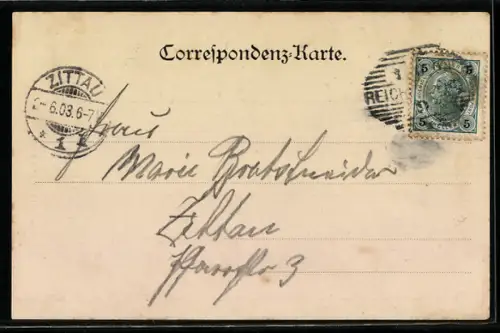 Correspondenz-Karte.
ZITTAU
6.03.6-7
1 REICH
5 5
5 5
Frau
Marie Bretschneider
Zittau
Pfarrstr 3